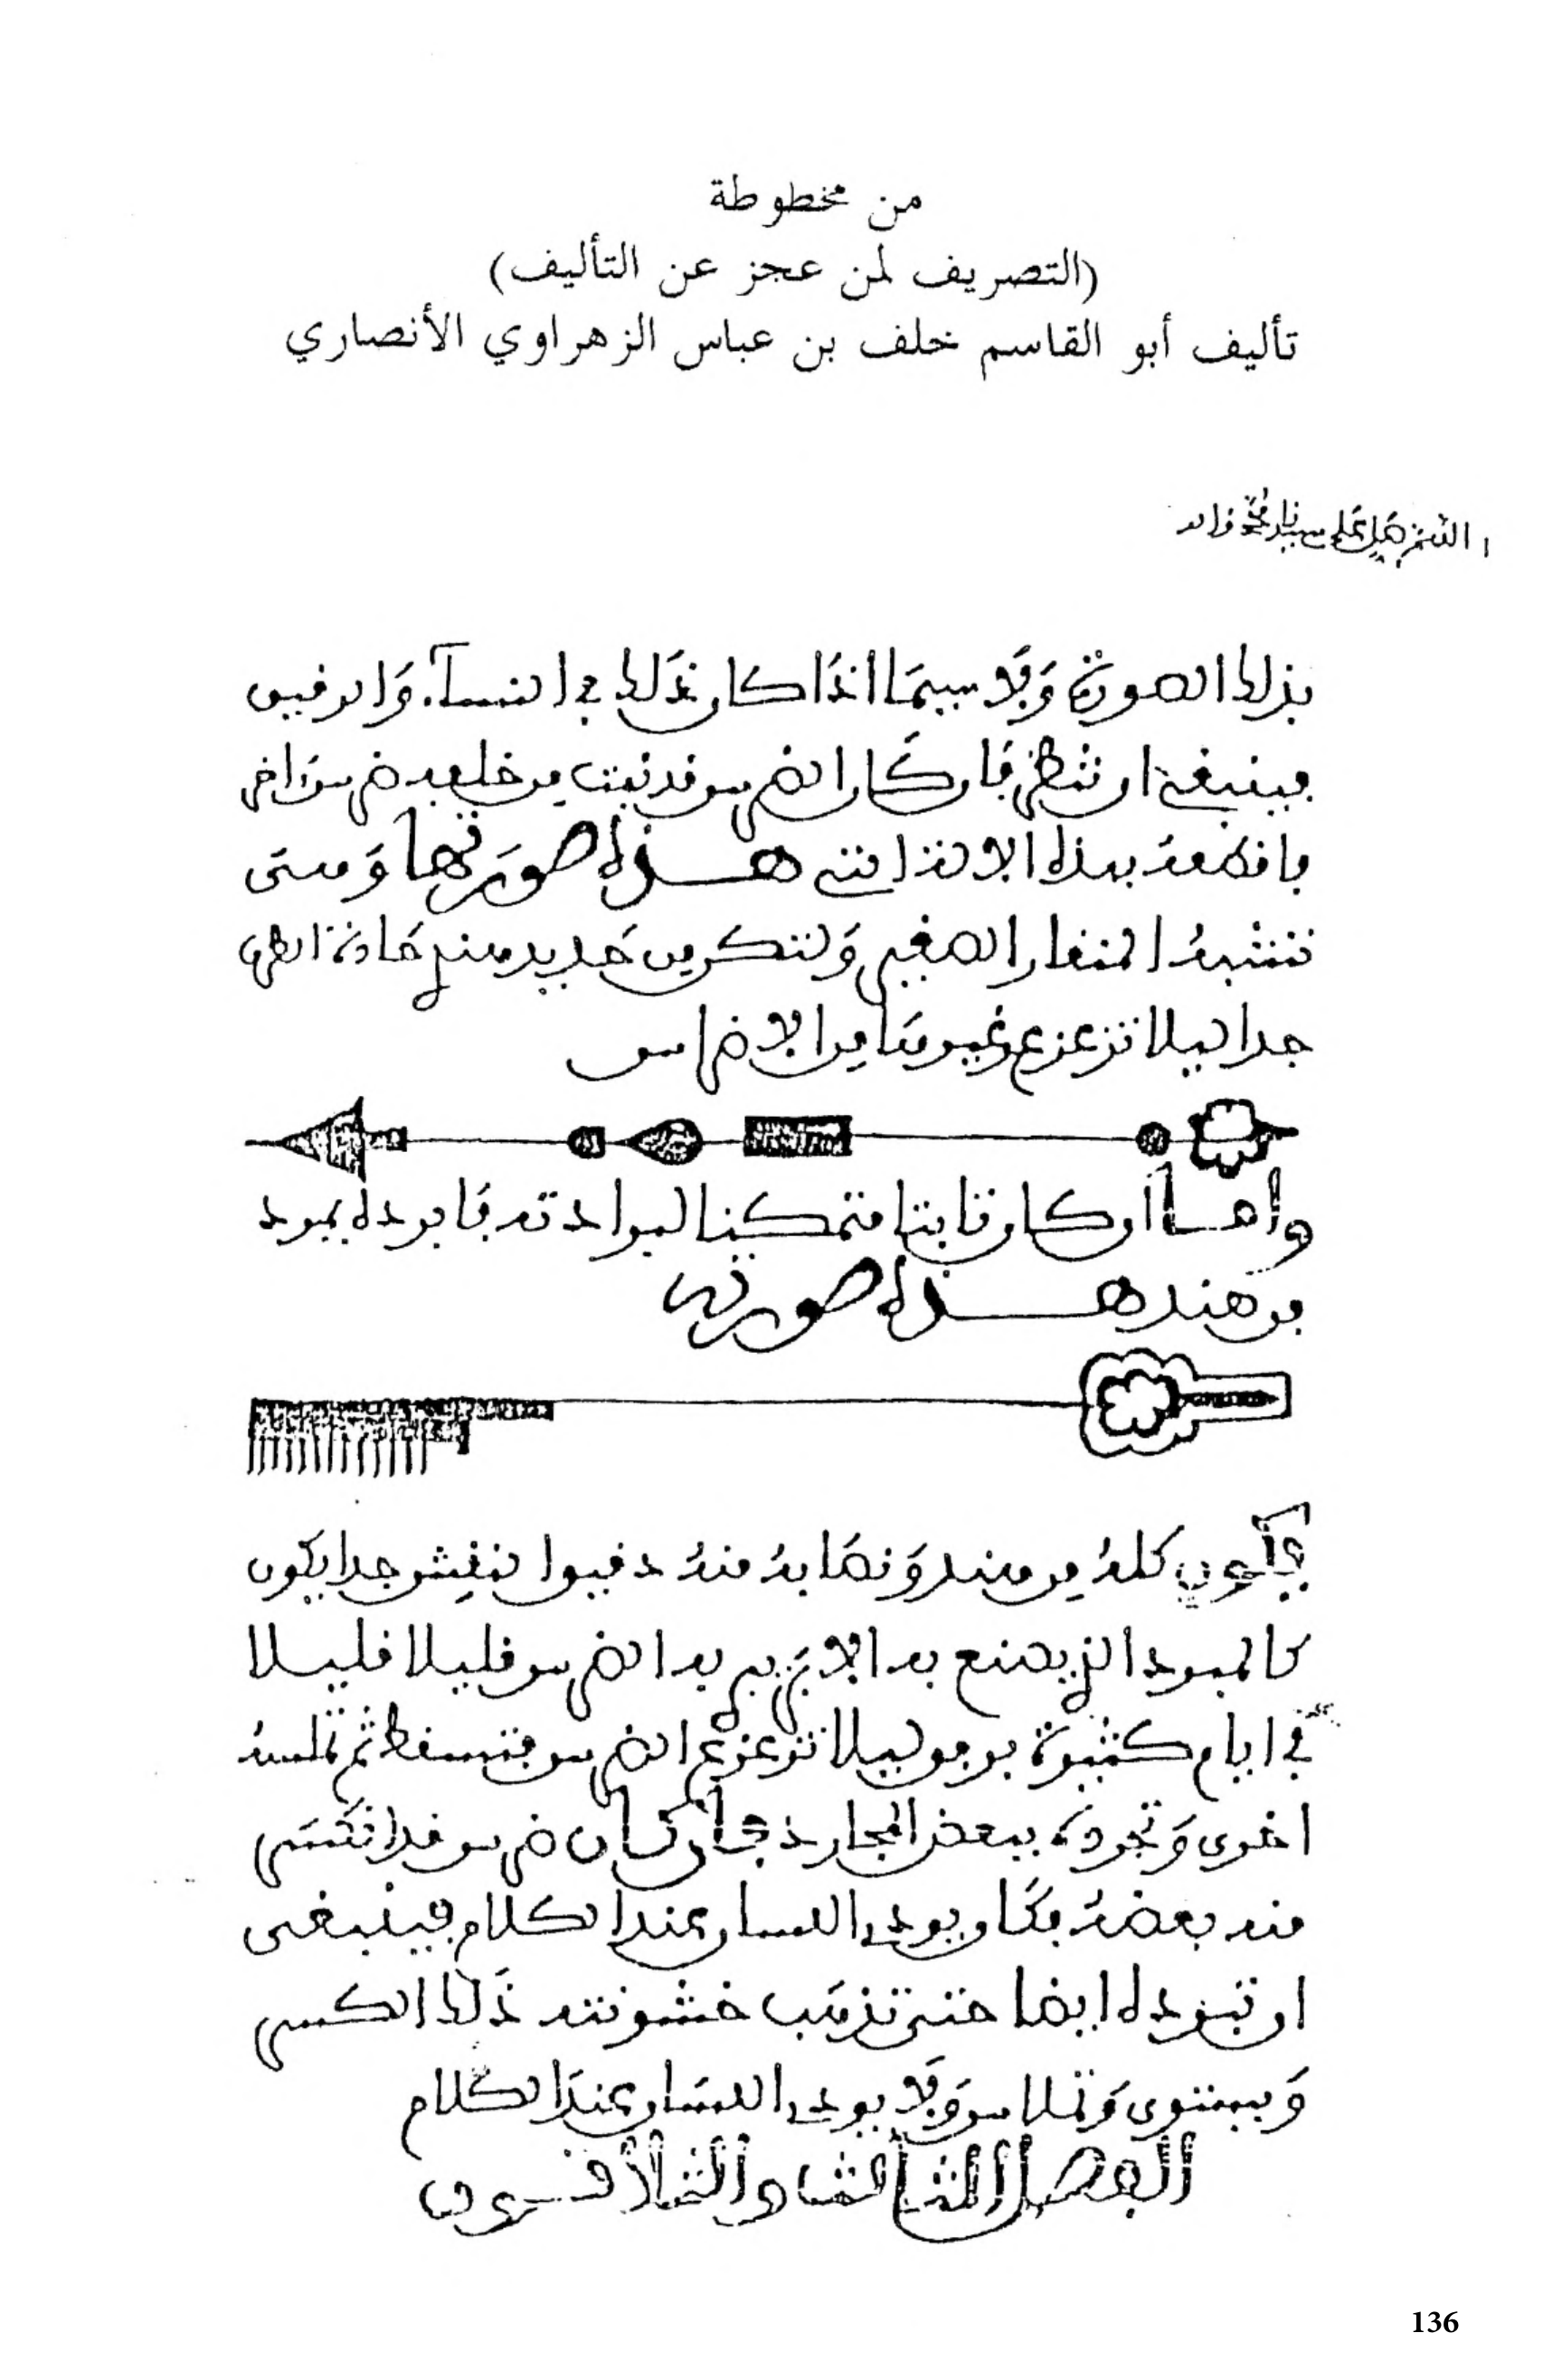 من مخطوطة
(التصريف لمن عجز عن التأليف)
تأليف أبو القاسم خلف بن عباس الزهراوي الأنصاري
اللهم صل على سيدنا محمد وآله
بذلك الصورة ولا سيما اذا كان ذلك في النساء والرقيق
فينبغي ان تنظر فان كان الضرس قد نبت من خلف ضرس اخر
فاقطعه بهذه الالة التي هذه صورتها وهي
تشبه المنقار الصغير ولتكن من حديد هندي حادة الطرف
جدا ليلا تزعزع غيره من الاضراس
واما ان كان نابتا متمكنا لبرادته فابرده بمبرد
من هند هذه صورته
يكون كله من هند ونصابه منه دقيق النقش جدا يكون
كالمبرد الذي يصنع به الابر يبرد به الضرس قليلا قليلا
في ايام كثيرة برفق ليلا تزعزع الضرس فتسقط ثم تملسه
اخرى وتجرده ببعض المجارد فان كان ضرس قد انكسر
منه بعضه فكان يوذي اللسان عند الكلام فينبغي
ان تبرده ايضا حتى تذهب خشونته ذلك الكسر
ويستوي وتملاس ولا يوذي اللسان عند الكلام
الفصل الثالث والثلاثون
136